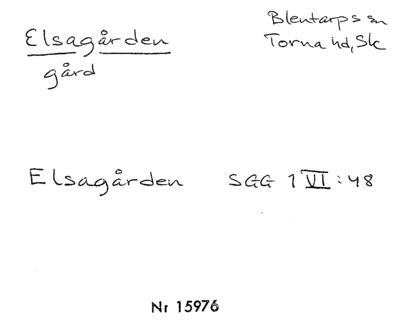 Elsagården
gård
Blentarps sn
Torna hd, Sk
Elsagården SGG 1 VI:48
Nr 15976